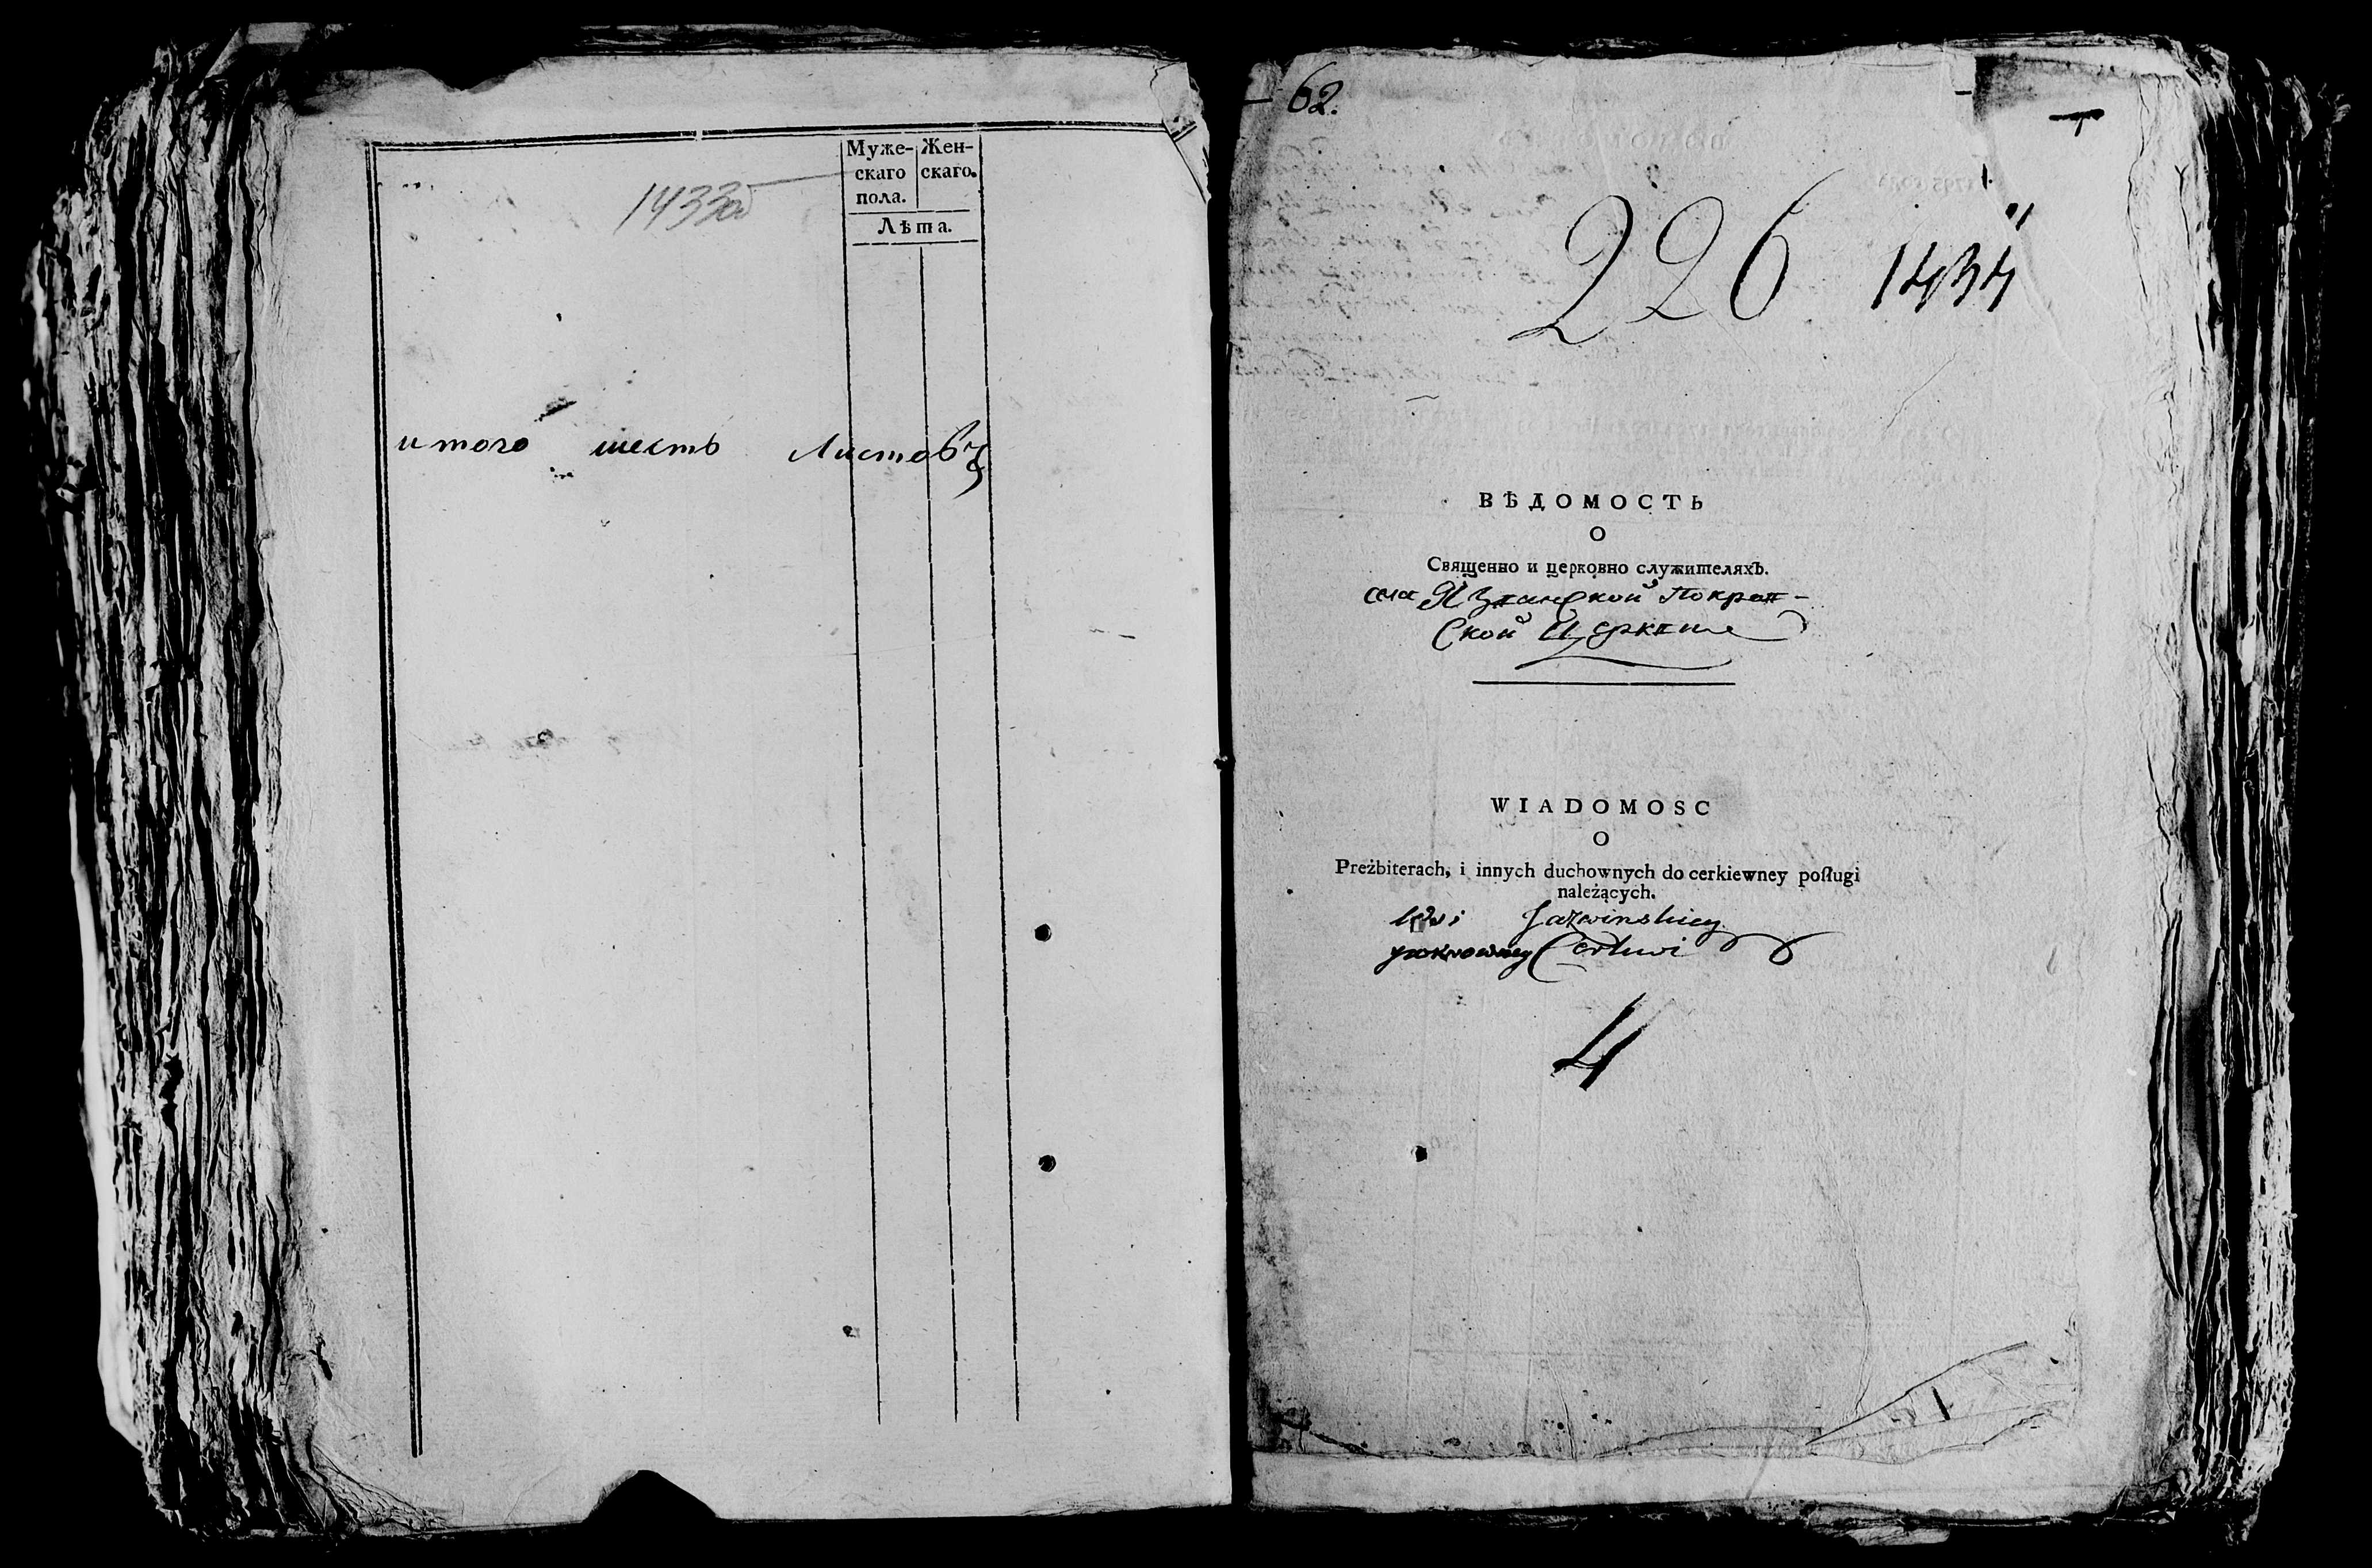 Муже- Жен-
скаго скаго.
пола.
Лѣта.
1433об
итого шесть Листовъ
62.
226 1434
ВѢДОМОСТЬ
О
Священно и церковно служителяхъ.
села Язвинской Покров-
ской Церкви
WIADOMOSC
O
Preżbiterach, i innych duchownych do cerkiewney posługi
należących.
wsi Jazwinskiey
pokrowney Cerkwi
4